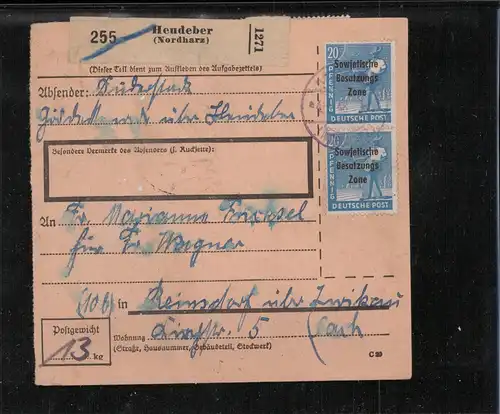 255
Heudeber
(Nordharz)
1271
(Dieser Teil dient zum Aufkleben des Aufgabezettels)
Absender:
über Heudeber
Besondere Vermerke des Absenders (s. Rückseite):
An Fr. Marianne
für Fr. Wegner
(10b) in Reinsdorf über Zwickau
Wohnung 5
(Straße, Hausnummer, Gebäudeteil, Stockwerk)
Postgewicht
13 kg
C 23
20
PFENNIG
Sowjetische
Besatzungs
Zone
DEUTSCHE POST
20
PFENNIG
Sowjetische
Besatzungs
Zone
DEUTSCHE POST